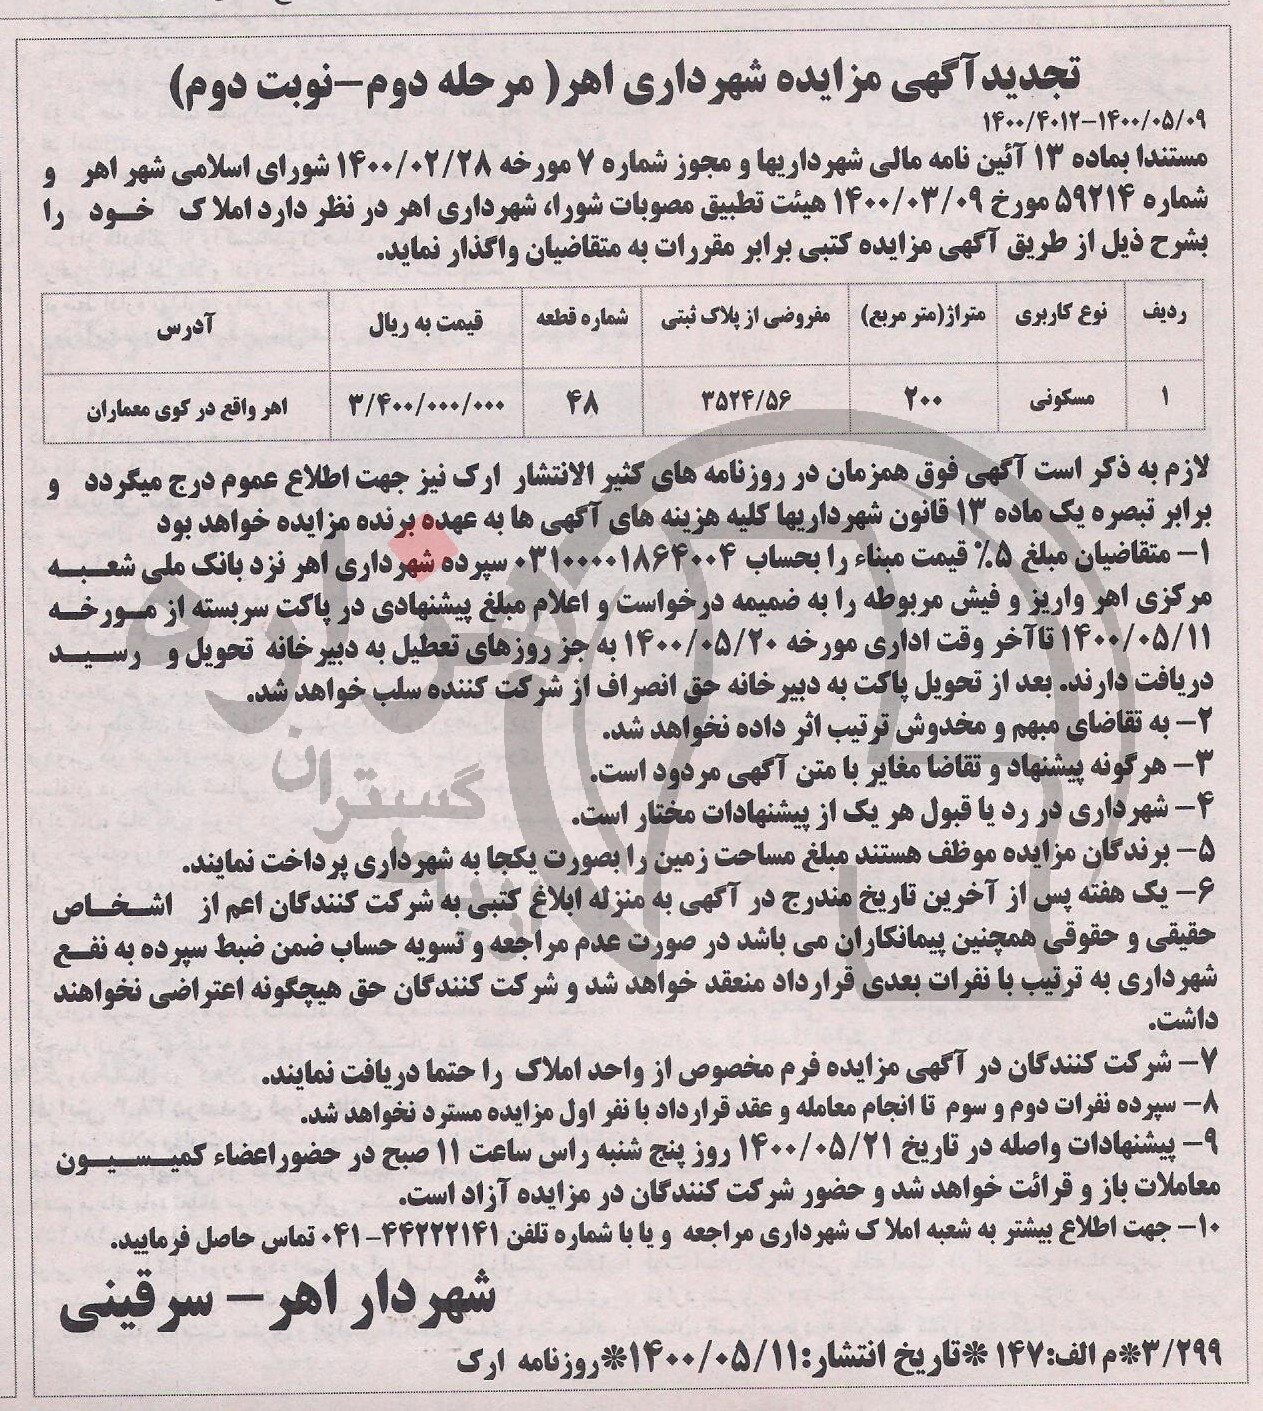 تجدیدآگهی مزایده شهرداری اهر( مرحله دوم-نوبت دوم)
۱۴۰۰/۴۰۱۲-۱۴۰۰/۰۵/۰۹
مستندا بماده ۱۳ آئین نامه مالی شهرداریها و مجوز شماره ۷ مورخه ۱۴۰۰/۰۲/۲۸ شورای اسلامی شهر اهر و
شماره ۵۹۲۱۴ مورخ ۱۴۰۰/۰۳/۰۹ هیئت تطبیق مصوبات شورا، شهرداری اهر در نظر دارد املاک خود را
بشرح ذیل از طریق آگهی مزایده کتبی برابر مقررات به متقاضیان واگذار نماید.
ردیف نوع کاربری متراژ(متر مربع) مفروضی از پلاک ثبتی شماره قطعه قیمت به ریال آدرس
۱ مسکونی ۲۰۰ ۳۵۲۴/۵۶ ۴۸ ۳/۴۰۰/۰۰۰/۰۰۰ اهر واقع در کوی معماران
لازم به ذکر است آگهی فوق همزمان در روزنامه های کثیر الانتشار ارک نیز جهت اطلاع عموم درج میگردد و
برابر تبصره یک ماده ۱۳ قانون شهرداریها کلیه هزینه های آگهی ها به عهده برنده مزایده خواهد بود
۱- متقاضیان مبلغ ۵% قیمت مبناء را بحساب ۰۳۱۰۰۰۰۱۸۶۴۰۰۴ سپرده شهرداری اهر نزد بانک ملی شعبه
مرکزی اهر واریز و فیش مربوطه را به ضمیمه درخواست و اعلام مبلغ پیشنهادی در پاکت سربسته از مورخه
۱۴۰۰/۰۵/۱۱ تاآخر وقت اداری مورخه ۱۴۰۰/۰۵/۲۰ به جز روزهای تعطیل به دبیرخانه تحویل و رسید
دریافت دارند. بعد از تحویل پاکت به دبیرخانه حق انصراف از شرکت کننده سلب خواهد شد.
۲- به تقاضای مبهم و مخدوش ترتیب اثر داده نخواهد شد.
۳- هرگونه پیشنهاد و تقاضا مغایر با متن آگهی مردود است.
۴- شهرداری در رد یا قبول هر یک از پیشنهادات مختار است.
۵- برندگان مزایده موظف هستند مبلغ مساحت زمین را بصورت یکجا به شهرداری پرداخت نمایند.
۶- یک هفته پس از آخرین تاریخ مندرج در آگهی به منزله ابلاغ کتبی به شرکت کنندگان اعم از اشخاص
حقیقی و حقوقی همچنین پیمانکاران می باشد در صورت عدم مراجعه و تسویه حساب ضمن ضبط سپرده به نفع
شهرداری به ترتیب با نفرات بعدی قرارداد منعقد خواهد شد و شرکت کنندگان حق هیچگونه اعتراضی نخواهند
داشت.
۷- شرکت کنندگان در آگهی مزایده فرم مخصوص از واحد املاک را حتما دریافت نمایند.
۸- سپرده نفرات دوم و سوم تا انجام معامله و عقد قرارداد با نفر اول مزایده مسترد نخواهد شد.
۹- پیشنهادات واصله در تاریخ ۱۴۰۰/۰۵/۲۱ روز پنج شنبه راس ساعت ۱۱ صبح در حضوراعضاء کمیسیون
معاملات باز و قرائت خواهد شد و حضور شرکت کنندگان در مزایده آزاد است.
۱۰- جهت اطلاع بیشتر به شعبه املاک شهرداری مراجعه و یا با شماره تلفن ۴۴۲۲۲۱۴۱-۰۴۱ تماس حاصل فرمایید.
شهردار اهر - سرقینی
۳/۲۹۹*م الف:۱۴۷ *تاریخ انتشار:۱۴۰۰/۰۵/۱۱*روزنامه ارک
هزاره
گستران